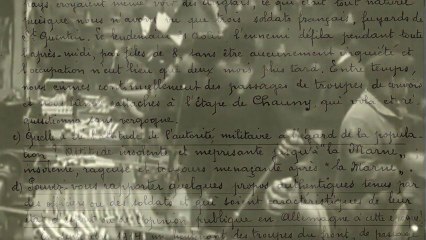 pays croyaient même voir des anglais, ce qui était tout naturel
puisque nous n'avions vu que trois soldats français, fuyards de
St Quentin. Le lendemain, donc l'ennemi défila pendant toute
l'après-midi, par files de 8, sans être aucunement inquiété et
l'occupation n'eut lieu que deux mois plus tard. Entre temps,
nous eûmes continuellement des passages de troupes
et nous étions rattachés à l'étape de Chauny, qui
sans vergogne.
c) Quelle attitude de l'autorité militaire à l'égard de la popula-
tion. Attitude insolente et méprisante jusqu'à "la Marne",
insolente, rageuse et toujours menaçante après "la Marne".
d) Pouvez-vous rapporter quelques propos authentiques tenus par
des officiers ou des soldats et qui soient caractéristiques de leur
état d'esprit de l'opinion publique en Allemagne à cette époque?
des troupes du front de passage